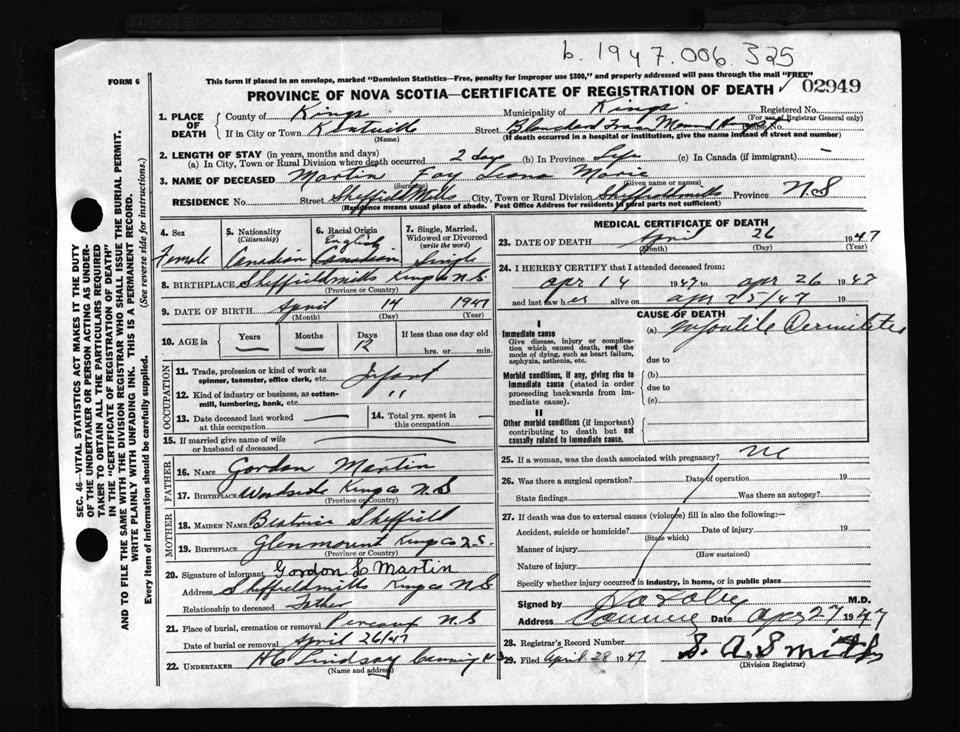 b. 1947.006.325
FORM 6
This form if placed in an envelope, marked "Dominion Statistics—Free, penalty for improper use $300," and properly addressed will pass through the mail "FREE"
PROVINCE OF NOVA SCOTIA—CERTIFICATE OF REGISTRATION OF DEATH
02949
1. PLACE OF DEATH
County of Kings Municipality of Kings Registered No.
(For use of Registrar General only)
If in City or Town Kentville Street House No.
(Name) (If death occurred in a hospital or institution, give the name instead of street and number)
2. LENGTH OF STAY (in years, months and days)
(a) In City, Town or Rural Division where death occurred 2 days (b) In Province Life (c) In Canada (if immigrant) —
3. NAME OF DECEASED Martin Fay Leona Marie
(Surname) (Given name or names)
RESIDENCE No. Street Sheffield Mills City, Town or Rural Division Sheffield Mills Province N S
(Residence means usual place of abode. Post Office Address for residents in rural parts not sufficient)
4. Sex
Female
5. Nationality
(Citizenship)
Canadian
6. Racial Origin
English
Canadian
7. Single, Married, Widowed or Divorced
(write the word)
Single
8. BIRTHPLACE Sheffield mills Kings N.S.
(Province or Country)
9. DATE OF BIRTH April 14 1947
(Month) (Day) (Year)
10. AGE in Years Months Days If less than one day old
12 hrs. or min.
OCCUPATION
11. Trade, profession or kind of work as spinner, teamster, office clerk, etc. Infant
12. Kind of industry or business, as cotton-mill, lumbering, bank, etc. "
13. Date deceased last worked at this occupation
14. Total yrs. spent in this occupation
15. If married give name of wife or husband of deceased
FATHER
16. NAME Gordon Martin
17. BIRTHPLACE Woodside Kings Co N.S
(Province or Country)
MOTHER
18. MAIDEN NAME Beatrice Sheffield
19. BIRTHPLACE Glenmount Kings Co N.S.
(Province or Country)
20. Signature of informant Gordon L Martin
Address Sheffield mills Kings Co N.S
Relationship to deceased Father
21. Place of burial, cremation or removal Pereaux N S
Date of burial or removal April 26/47
22. UNDERTAKER H C Lindsay Canning N S
(Name and address)
MEDICAL CERTIFICATE OF DEATH
23. DATE OF DEATH April 26 1947
(Month) (Day) (Year)
24. I HEREBY CERTIFY that I attended deceased from:
apr 14 1947 to apr 26 1947
and last saw her alive on apr 25/47 19
CAUSE OF DEATH
I
Immediate cause
Give disease, injury or complication which caused death, not the mode of dying, such as heart failure, asphyxia, asthenia, etc.
(a) Infantile Dermititis
due to
Morbid conditions, if any, giving rise to immediate cause (stated in order proceeding backwards from immediate cause).
(b)
due to
(c)
II
Other morbid conditions (if important) contributing to death but not causally related to immediate cause.
25. If a woman, was the death associated with pregnancy? no
26. Was there a surgical operation? Date of operation 19
State findings Was there an autopsy?
27. If death was due to external causes (violence) fill in also the following:—
Accident, suicide or homicide? Date of injury 19
(State which)
Manner of injury
(How sustained)
Nature of injury
Specify whether injury occurred in industry, in home, or in public place
Signed by M.D.
Address Canning Date Apr 27 1947
28. Registrar's Record Number
29. Filed April 28 1947 S. A. Smith
(Division Registrar)
SEC. 46—VITAL STATISTICS ACT MAKES IT THE DUTY OF THE UNDERTAKER OR PERSON ACTING AS UNDERTAKER TO OBTAIN ALL THE PARTICULARS REQUIRED IN THE "CERTIFICATE OF REGISTRATION OF DEATH" AND TO FILE THE SAME WITH THE DIVISION REGISTRAR WHO SHALL ISSUE THE BURIAL PERMIT.
WRITE PLAINLY WITH UNFADING INK. THIS IS A PERMANENT RECORD.
Every item of Information should be carefully supplied. (See reverse side for instructions.)